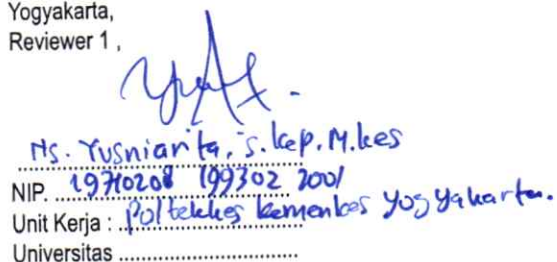 Yogyakarta,
Reviewer 1 ,
Ns. Yusniarita, S.kep. M.kes
NIP. 19710208 199302 2001
Unit Kerja : Poltekkes kemenkes Yogyakarta.
Universitas ................................